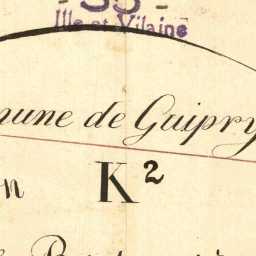 35
Ille et Vilaine
mune de Guipry
on K²